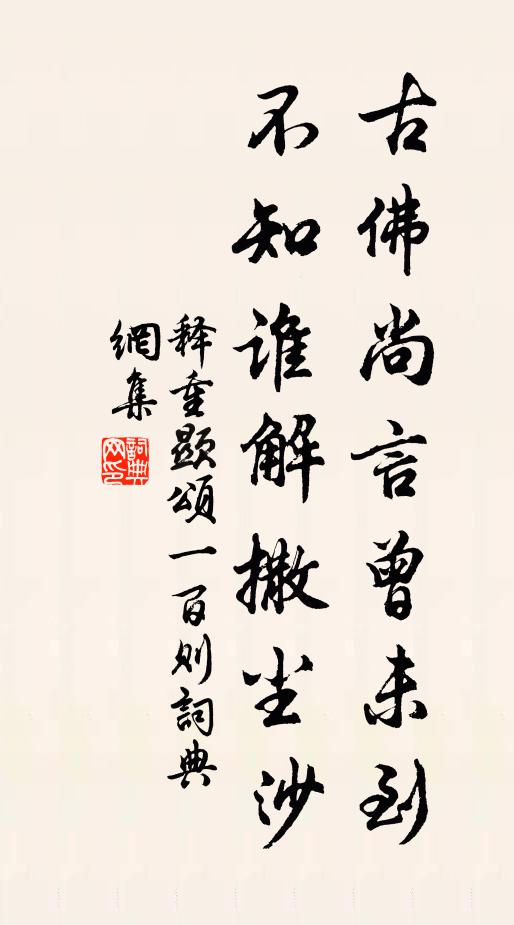 古佛尚言曾未到
不知谁解撒尘沙
释重显頌一百则詞典
網集
詞典网印